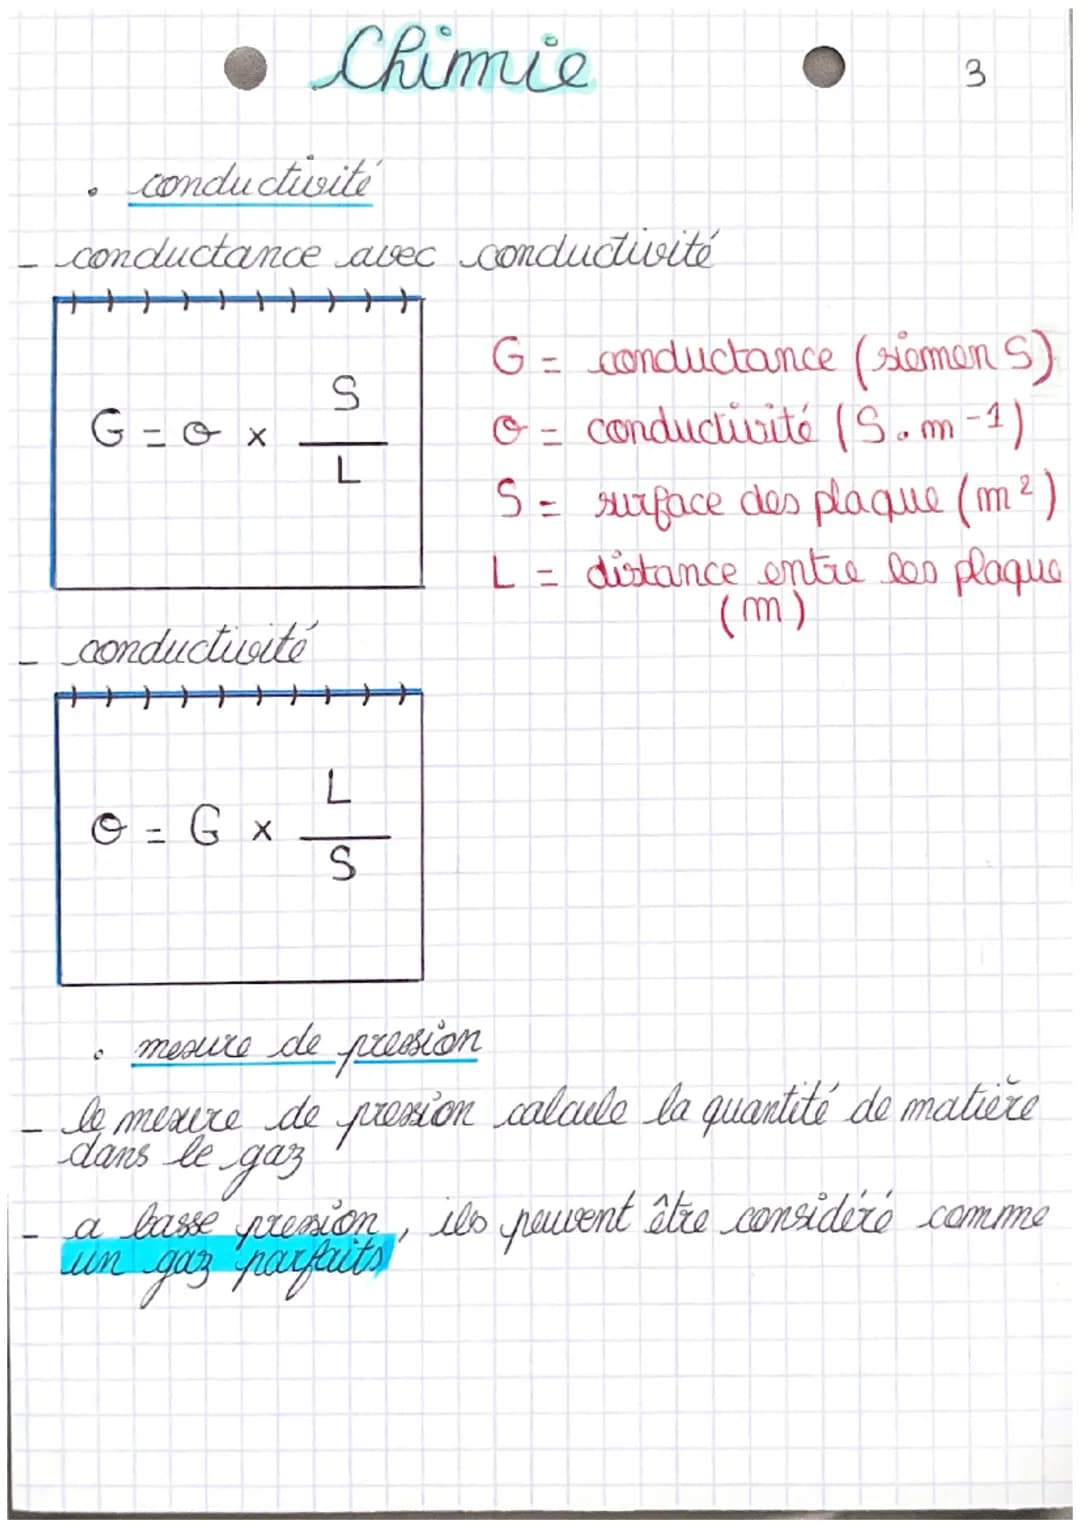 Chimie
3
• conductivité
- conductance avec conductivité
G = σ × S / L
G = conductance (siemen S)
σ = conductivité (S.m-1)
S = surface des plaque (m²)
L = distance entre les plaque
(m)
- conductivité
σ = G × L / S
• mesure de pression
- le mesure de pression calcule la quantité de matière
dans le gaz
- a basse pression, ils peuvent être considéré comme
un gaz parfaits